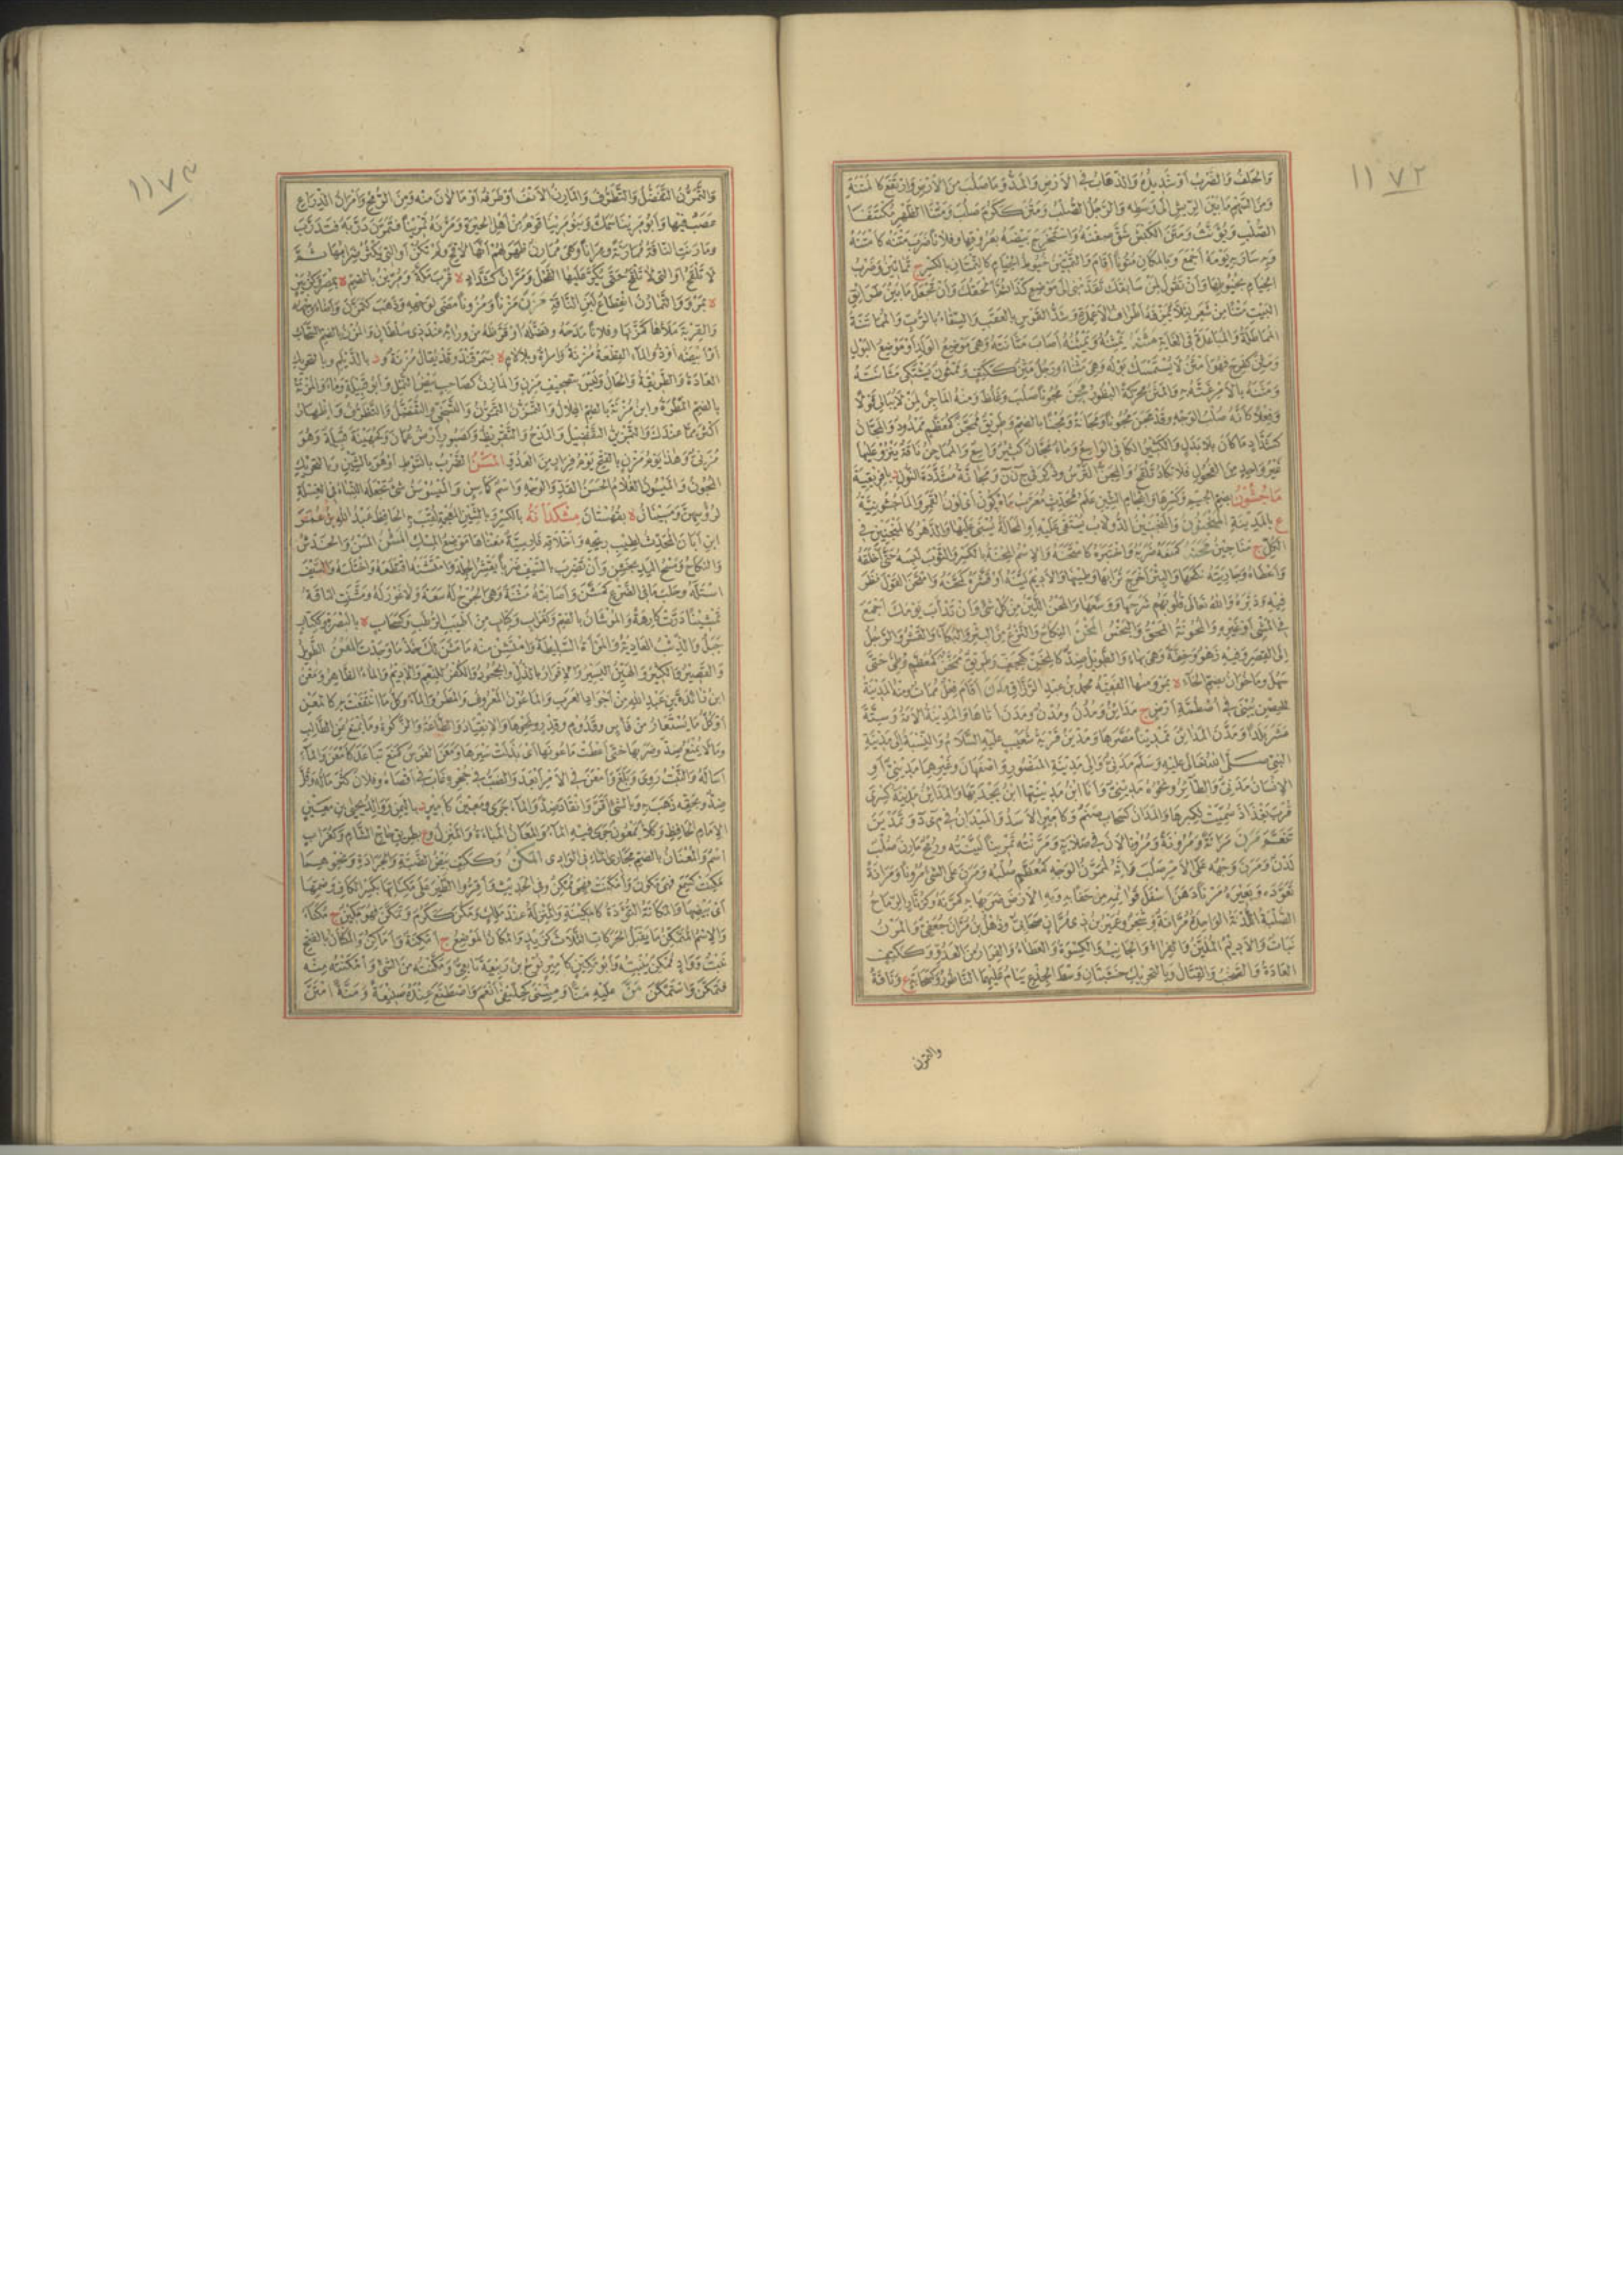 ١١٧٢
والحلف والضرب أو شديده والذهاب في الأرض والمد وما صلب من الأرض وارتفع كالمتنة
ومن السهم ما بين الريش إلى وسطه والرجل الصلب ومتن ككرم صلب ومتنا الظهر مكتنفا
الصلب ويؤنث ومتن الكبش شق صفنه واستخرج بيضه بعروقها وفلانا ضرب متنه كأمتنه
وبه سار به يومه أجمع وبالمكان متونا أقام والتمتين خيوط الخيام كالتمتان بالكسر ج تماتين وضرب
الخيام بخيوطها وأن تقول لمن سابقك تقدمني إلى موضع كذا ثم ألحقك وأن تجعل ما بين طرائق
البيت متنا من شعر لئلا تمزقه أطراف الأعمدة وشد القوس بالعقب والسقاء بالرب والمماتنة
المماطلة والمباعدة في الغاية مثنه يمثنه ويمثنه أصاب مثانته وهي موضع الولد أو موضع البول
ومثن كفرح فهو أمثن لا يستمسك بوله وهي مثناء ورجل مثن ككتف وممثون يشتكي مثانته
ومثنه بالأمر غته به والمثن محركة البظور مجن مجونا صلب وغلظ ومنه الماجن لمن لا يبالي قولا
وفعلا كأنه صلب الوجه وقد مجن مجونا ومجانة ومجنا بالضم وطريق ممجن كمعظم ممدود والمجان
كشداد ما كان بلا بدل والكثير الكافي الواسع وماء مجان كثير واسع والمماجن ناقة ينزو عليها
غير واحد من الفحول فلا تكاد تلقح والمجن الترس وذكر في ج ن ن ومجانة مشددة النون د بإفريقية
ماجشون بضم الجيم وكسرها وإعجام الشين علم محدث معرب ماه گون أي لون القمر والماجشونية
ع بالمدينة المنجنون والمنجنين الدولاب يستقى عليه أو المحالة يسنى عليها والدهر كالمنجنين في
الكل ج مناجين محنه كمنعه ضربه واختبره كامتحنه والاسم المحنة بالكسر والثوب لبسه حتى أخلقه
وأعطاه وجاريته نكحها والبئر أخرج ترابها وطينها والأديم لينه أو قشره كمحنه وامتحن القول نظر
فيه ودبره والله تعالى قلوبهم شرحها ووسعها والمحن اللين من كل شيء وأن تدأب يومك أجمع
في المشي أو غيره والمحونة المحق والبخس المخن النكاح والنزع من البئر والبكاء والقشر والرجل
إلى القصر وفيه زهو وخفة وهي بهاء والطويل ضد كالمخن كهجف وطريق ممخن كمعظم وطئ حتى
سهل وماخوان بضم الخاء ة بمرو منها الفقيه محمد بن عبد الرزاق مدن أقام فعل ممات ومنه المدينة
للحصن يبنى في أصطمة أرض ج مدائن ومدن ومدن ومدن أتاها والمدينة الأمة وستة
عشر بلدا ومدن المدائن تمدينا مصرها ومدين قرية شعيب عليه السلام والنسبة إلى مدينة
النبي صلى الله تعالى عليه وسلم مدني وإلى مدينة المنصور وأصفهان وغيرهما مديني أو
الإنسان مدني والطائر ونحوه مديني وأنا ابن مدينتها ابن بجدتها والمدائن مدينة كسرى
قرب بغداد سميت لكبرها والمدان كسحاب صنم وكأمير الأسد والميدان في م ي د وتمدين
تنعم مرن مرانة ومرونة ومرونا لان في صلابة ومرنته تمرينا لينته ورمح مارن صلب
لدن ومرن وجهه على الأمر صلب وإنه لممرن الوجه كمعظم صلبه ومرن على الشيء مرونا ومرانة
تعوده وبعيره مرنا دهن أسفل قوائمه من حفا به وبه الأرض ضربها به كمرنه وكزنار الرماح
الصلبة اللدنة الواحدة مرانة وشجر وعمير بن ذي مران صحابي وذهل بن مران جعفي والمرن
نبات والأديم الملين والفراء والجانب والكسوة والعطاء والفرار من العدو وككتف
العادة والصخب والقتال وبالتحريك خشبتان وسط الجذع ينام عليهما الناطور وكسحابة ع وناقة
والتمرن
١١٧٣
والتمرن التفضل والتظرف والمارن الأنف أو طرفه أو ما لان منه ومن الرمح وأمران الذراع
عصب فيها وأبو مرينا سمك وبنو مرينا قوم من أهل الحيرة ومرنه تمرينا فتمرن دربه فتدرب
ومارنت الناقة ممارنة ومرانا وهي ممارن ظهر لهم أنها لاقح ولم تكن أو التي يكثر ضرابها ثم
لا تلقح أو التي لا تلقح حتى يكر عليها الفحل ومران كشداد ة قرب مكة ومرين بالضم ة بمصر
ة بمرو والتمارن انقطاع لبن الناقة مزن مزنا ومزونا مضى لوجهه وذهب كتمزن وأضاء وجهه
والقربة ملأها كمزنها وفلانا مدحه وفضله أو قرظه من ورائه عند ذي سلطان والمزن بالضم السحاب
أو أبيضه أو ذو الماء القطعة مزنة وامرأة وبلا لام ة بسمرقند وقد يقال مزنة و د بالديلم وبالتحريك
العادة والطريقة والحال وليس بتصحيف مرن والمازن كصاحب بيض النمل وأبو قبيلة وماء والمزنة
بالضم المطرة وابن مزنة بالضم الهلال والتمزن التمرن والتسخي والتفضل والتظرف وإظهار
أكثر مما عندك والتمزين التفضيل والمدح والتقريظ وكصبور أرض عمان وكجهينة قبيلة وهو
مزني وهذا يوم مزن بالفتح يوم فرار من العدو المسن الضرب بالسوط أو هو بالشين وبالتحريك
المجون والميسون الغلام الحسن القد والوجه واسم كأسن والميسوسن شيء تجعله النساء في الغسلة
لرؤسهن وميسنان ة بقهستان مشكدانة بالكسر وبالشين المعجمة لقب الحافظ عبد الله بن عمر
ابن أبان المحدث لطيب ريحه وأخلاقه فارسية معناها موضع المسك المشن الخدش
والنكاح ومسح اليد بخشن وأن تضرب بالسيف ضربا يقشر الجلد وامتشنه اقتطعه واختلسه والسيف
استله وحلب ما في الضرع كمشن وأصابته مشنة وهي الجرح له سعة ولا غور له ومشنت الناقة
تمشينا درت كارهة والموشان بالضم وكغراب وكتاب من أطيب الرطب وكسحاب ة بالبصرة وككتاب
جبل والذئب العادية والمرأة السليطة وامتشن منه ما مشن لك خذ ما وجدت المعن الطويل
والقصير والكثير والهين اليسير والإقرار بالذل والجحود والكفر للنعم والأديم والماء الظاهر ومعن
ابن زائدة بن عبد الله من أجواد العرب والماعون المعروف والمطر والماء وكل ما انتفعت به كالمعن
أو كل ما يستعار من فأس وقدوم وقدر ونحوها والانقياد والطاعة والزكوة وما يمنع عن الطالب
وما لا يمنع ضد وضربها حتى أعطت ماعونها أي بذلت سيرها ومعن الفرس كمنع تباعد كأمعن والماء
أساله والنبت روى وبلغ وأمعن في الأمر أبعد والضب في جحره غاب في أقصاه وفلان كثر ماله وقل
ضد وبحقه ذهب به وبالشيء أقر وانقاد ضد والماء جرى ومعين كأمير د باليمن ووالد يحيى بن معين
الإمام الحافظ وكلأ ممعون جرى فيه الماء والمعان المباءة والمنزل و ع بطريق حاج الشام وكغراب
اسم والمعنان بالضم مجاري الماء في الوادي المكن وككتف بيض الضبة والجرادة ونحوهما
مكنت كسمع فهي مكون وأمكنت فهي ممكن وفي الحديث وأقروا الطير على مكناتها بكسر الكاف وضمها
أي بيضها والمكانة التؤدة كالمكينة والمنزلة عند ملك ومكن ككرم وتمكن فهو مكين ج مكناء
والاسم المتمكن ما يقبل الحركات الثلاث كزيد والمكان الموضع ج أمكنة وأماكن والمكنان بالفتح
نبت وواد ممكن ينبته وأبو مكين كأمير نوح بن ربيعة تابعي ومكنته من الشيء وأمكنته منه
فتمكن واستمكن من عليه منا ومنينى كخليفى أنعم واصطنع عنده صنيعة ومنة امتن